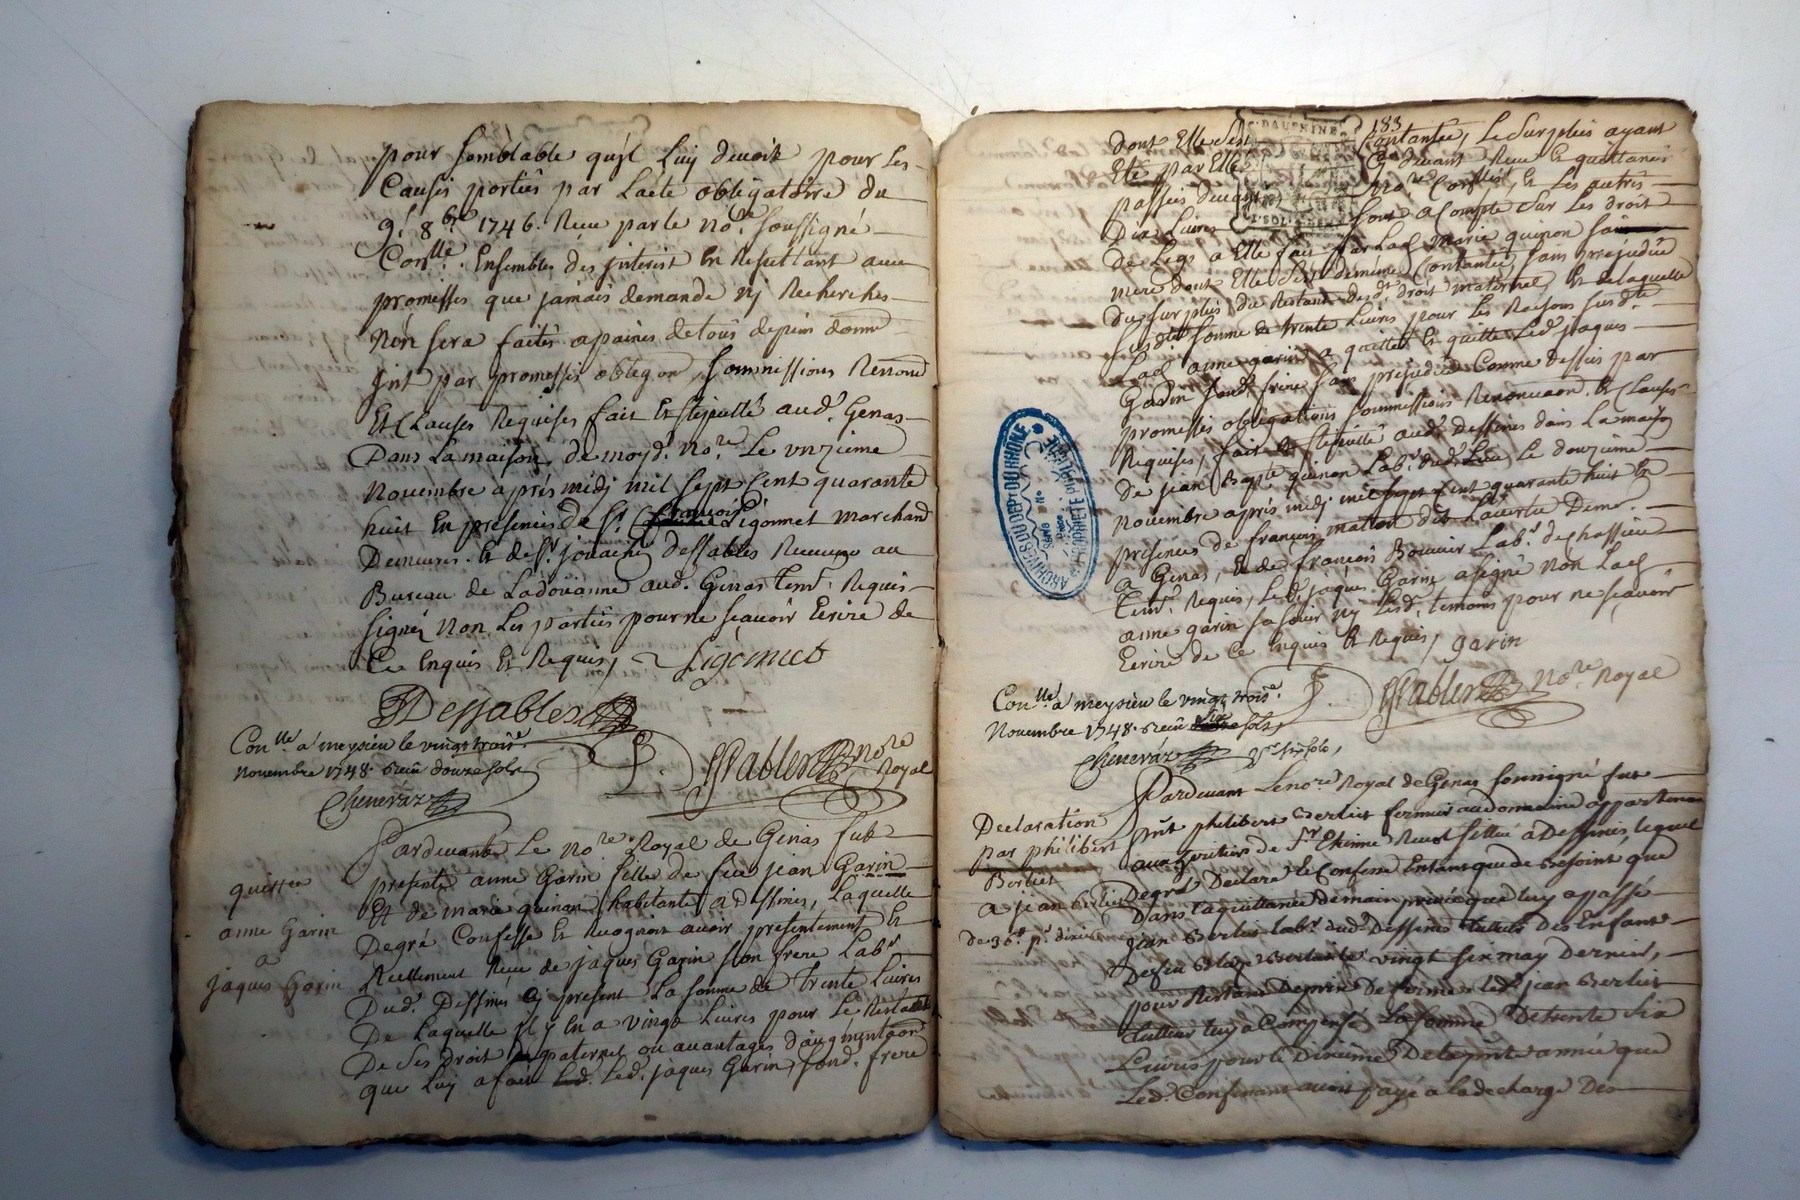 pour semblable qu'jl Luy devoit pour les
Causes portées par Lacte obligatoire du
9e. 8bre 1746. Reçu par le Nore. soussigné
Conlle. Ensembles des jnterest en resultant avec
promesses que jamais demande nj Recherches
Nën sera faites apaines detous depens domë
jnt par promesses obligaon, sommissions Renonë
Et Clauses Requises fait Et stipullé aud. Genas
Dans Lamaison de moyd. Nore. Le unzieme
Novembre après midj mil sept Cent quarante
huit En presences de Sr. françois Ligonnet marchand
Demeurë. Et de Sr. joachin Dessables Receveur au
Bureau de Ladoüanne aud. Genas temë. Requis
signés Non Les parties pour ne sçavoir Ecrire de
Ce Enquis Et Requis, Ligonnet
Dessables
Conlle a meysieu le vingt troise.
Novembre 1748. Reçu douze sols
Chenevaz
Nore
Royal
Pardevant Le Nore Royal de Genas fut
quittce
anne Garin
a
jaques Garin
presente anne Garin fille de feu jean Garin
Et de marie quinon habitante a Dessines, Laquelle
Degré Confesse Et recognoit avoir presentement Et
Reellement Reçu de jaques Garin son frere Labr
Dud. Dessines Cj present La somme de trente Livres
De Laquelle jl y En a vingt Livres pour Le Restant
De Ses droit paternel ou avantages d'augmentaon
que Luj a fait Led. jaques Garin, sond. frere
183
DAUPHINE
dont Elle sest Contantée, Le Surplus ayant
Eté par Elle Cydevant Reçu Et quittancé
passées devant Nore Conllé, Et Les autres
Dix Livres sont a Compte Sur Les droit
De Legs a Elle fait par Lad. Marie quinon sa
mere dont Elle s'est demême Contantée sans prejudice
du surplus, du Restant desd. droit maternel, Et delaquelle
susdte somme de trente Livres pour les Raisons susdte.
Lad. anne garin a quitté Et quitte Led. jaques
Garin sond. frere sans prejudice Comme dessus par
promesses obligations sommissions Renonciaon. Et Clauses
Requises, fait Et stipullé aud. Dessines dans La maison
de jean Bapte quinon Labr. dud. Lieu Le douzieme
Novembre après midj mil sept Cent quarante huit En
presences de françois matton dit Lavertu Demr.
a Genas, Et de francois Bouvier Labr. de chassieu
temë. Requis, Led. jaques Garin a signé Non Lad.
anne garin sa soeur nj Lesd. temoins pour ne sçavoir
Ecrire de Ce Enquis Et Requis, garin
Nore. Royal
Conlle a meysieu le vingt troise.
Novembre 1748. Reçu six sols
Chenevaz
ARCHIVES DU DEPT DU RHONE
PROPRIETE PUBLIQUE
Pardevant Lenore Royal de Genas soussigné fut
Declaration
par philibert
Berliet
a jean berliet
prnt philibert Berliet fermier audomaine appartenant
aux heritiers de Sr Etienne sittué a Dessines, lequel
Degré Declare Et Confesse Entantquede Besoint, que
Dans laquittance Demain privée que luy a passé
jean Berliet labr. dud. Dessines Des Enfants
Defeu vingt six may Dernier,
pour Restans Deprix De fermes led. jean Berliet
luy a Compensé La somme De trente six
Livres pour le Dixieme De la prnte année que
Led. Confessant avoit payé a ladecharge Des